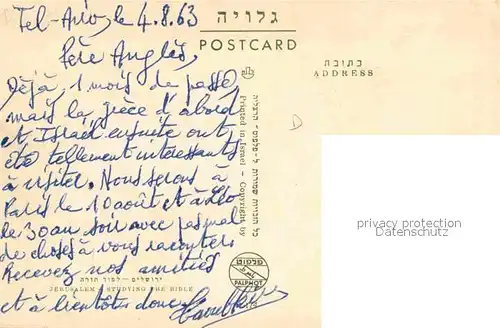 Tel-Aviv, le 4.8.63
Père Anglès,
Déjà, 1 mois de passé
mais la grèce d'abord
et Israël ensuite ont
été tellement intéressants
à visiter. Nous serons à
Paris le 10 août et à
le 30 au soir avec pas mal
de choses à vous raconter.
Recevez nos amitiés
et à bientôt donc
גלויה
POSTCARD
כתובת
ADDRESS
D
Printed in Israel - Copyright by
כל הזכויות שמורות ל״פלפוט״ הרצליה
ירושלים – למוד תורה
JERUSALEM STUDYING THE BIBLE
פלפוט
PALPHOT
privacy protection
Datenschutz